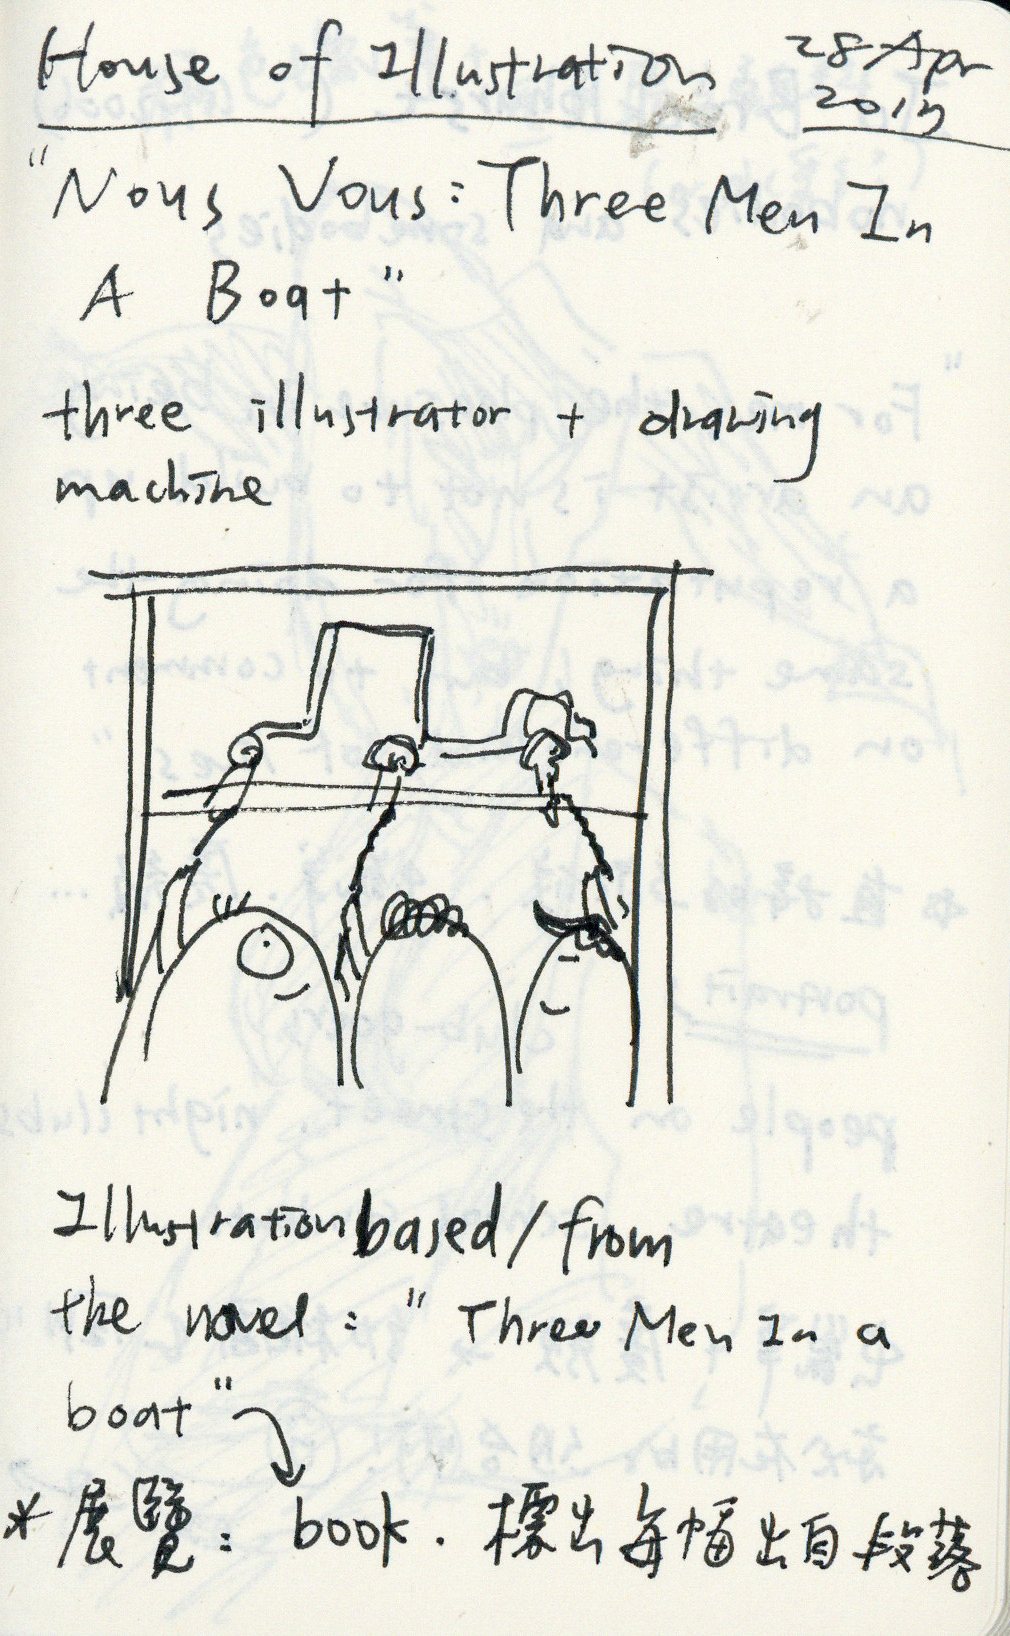 House of Illustration
28 Apr
2017
"Nous Vous: Three Men In
A Boat"
three illustrator + drawing
machine
Illustration based/from
the novel: "Three Men In a
boat"
* 展覽: book. 標出每幅出自段落